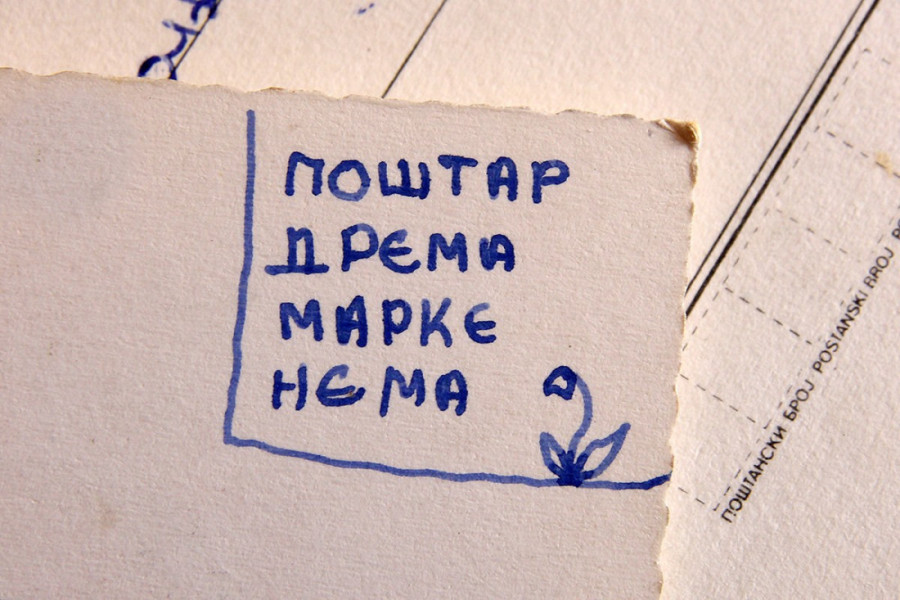 ПОШТАР
ДРЕМА
МАРКЕ
НЕМА
ПОШТАНСКИ БРОЈ POSTANSKI BROJ